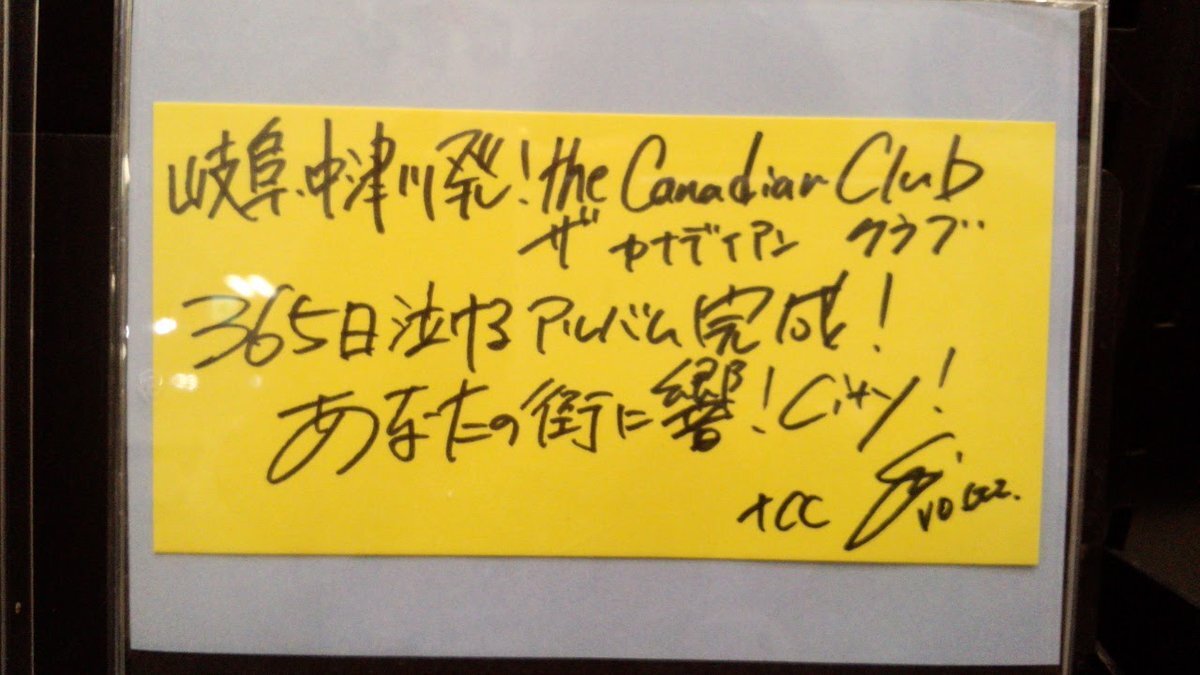 岐阜、中津川発!the Canadian Club
ザ カナディアン クラブ
365日泣けるアルバム完成!
あなたの街に響!City!
tCC